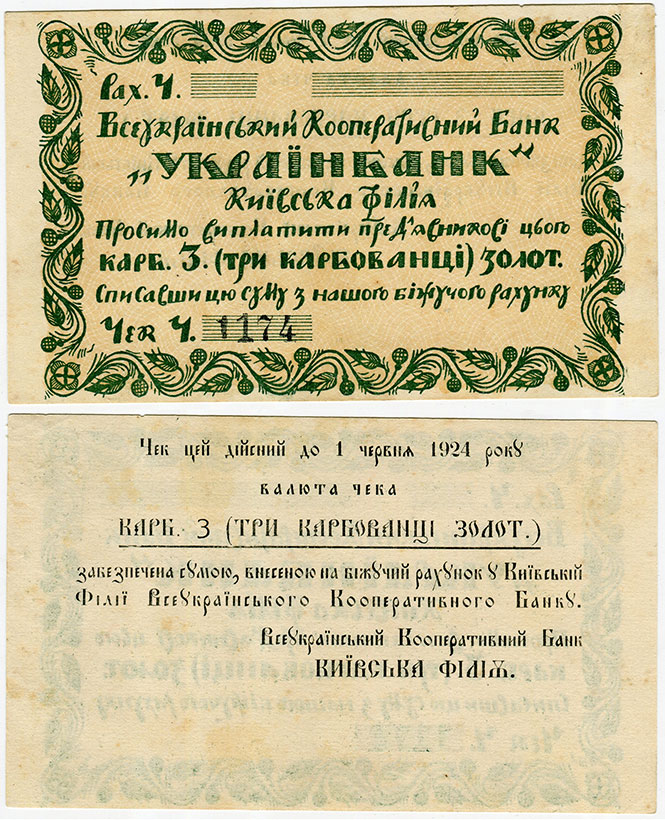 Рах. Ч.
Всеукраїнський Кооперативний Банк
„УКРАЇНБАНК“
Київська Філія
Просимо виплатити пред'явникові цього
КАРБ. 3. (ТРИ КАРБОВАНЦІ) ЗОЛОТ.
Списавши цю суму з нашого біжучого рахунку
Чек Ч. 1174
Чек цей дійсний до 1 червня 1924 року
ВАЛЮТА ЧЕКА
КАРБ. 3 (ТРИ КАРБОВАНЦІ ЗОЛОТ.)
забезпечена сумою, внесеною на біжучий рахунок у Київській
Філії Всеукраїнського Кооперативного Банку.
Всеукраїнський Кооперативний Банк
КИЇВСЬКА ФІЛІЯ.